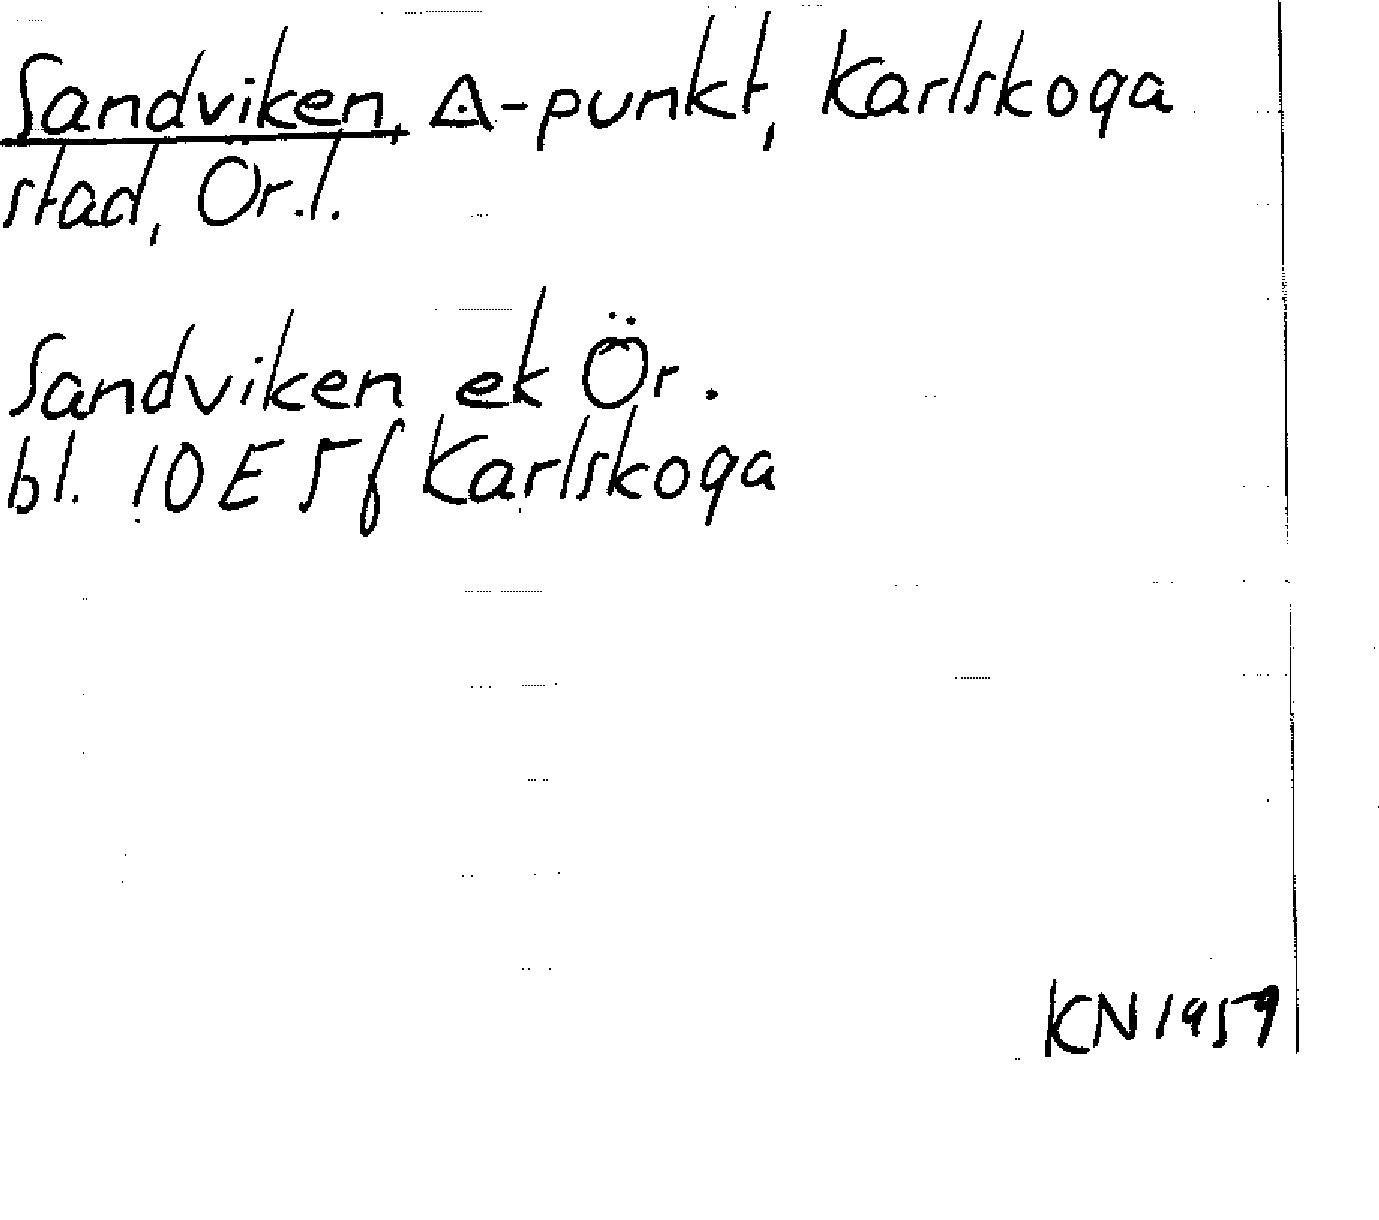 Sandviken, △-punkt, Karlskoga
stad, Ör.l.
Sandviken ek Ör.
bl. 10 E 5 f Karlskoga
KN 1959